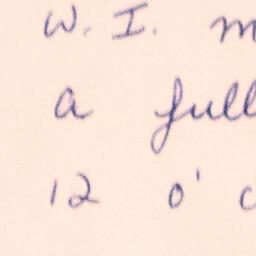 W. I. m
a full
12 o' c